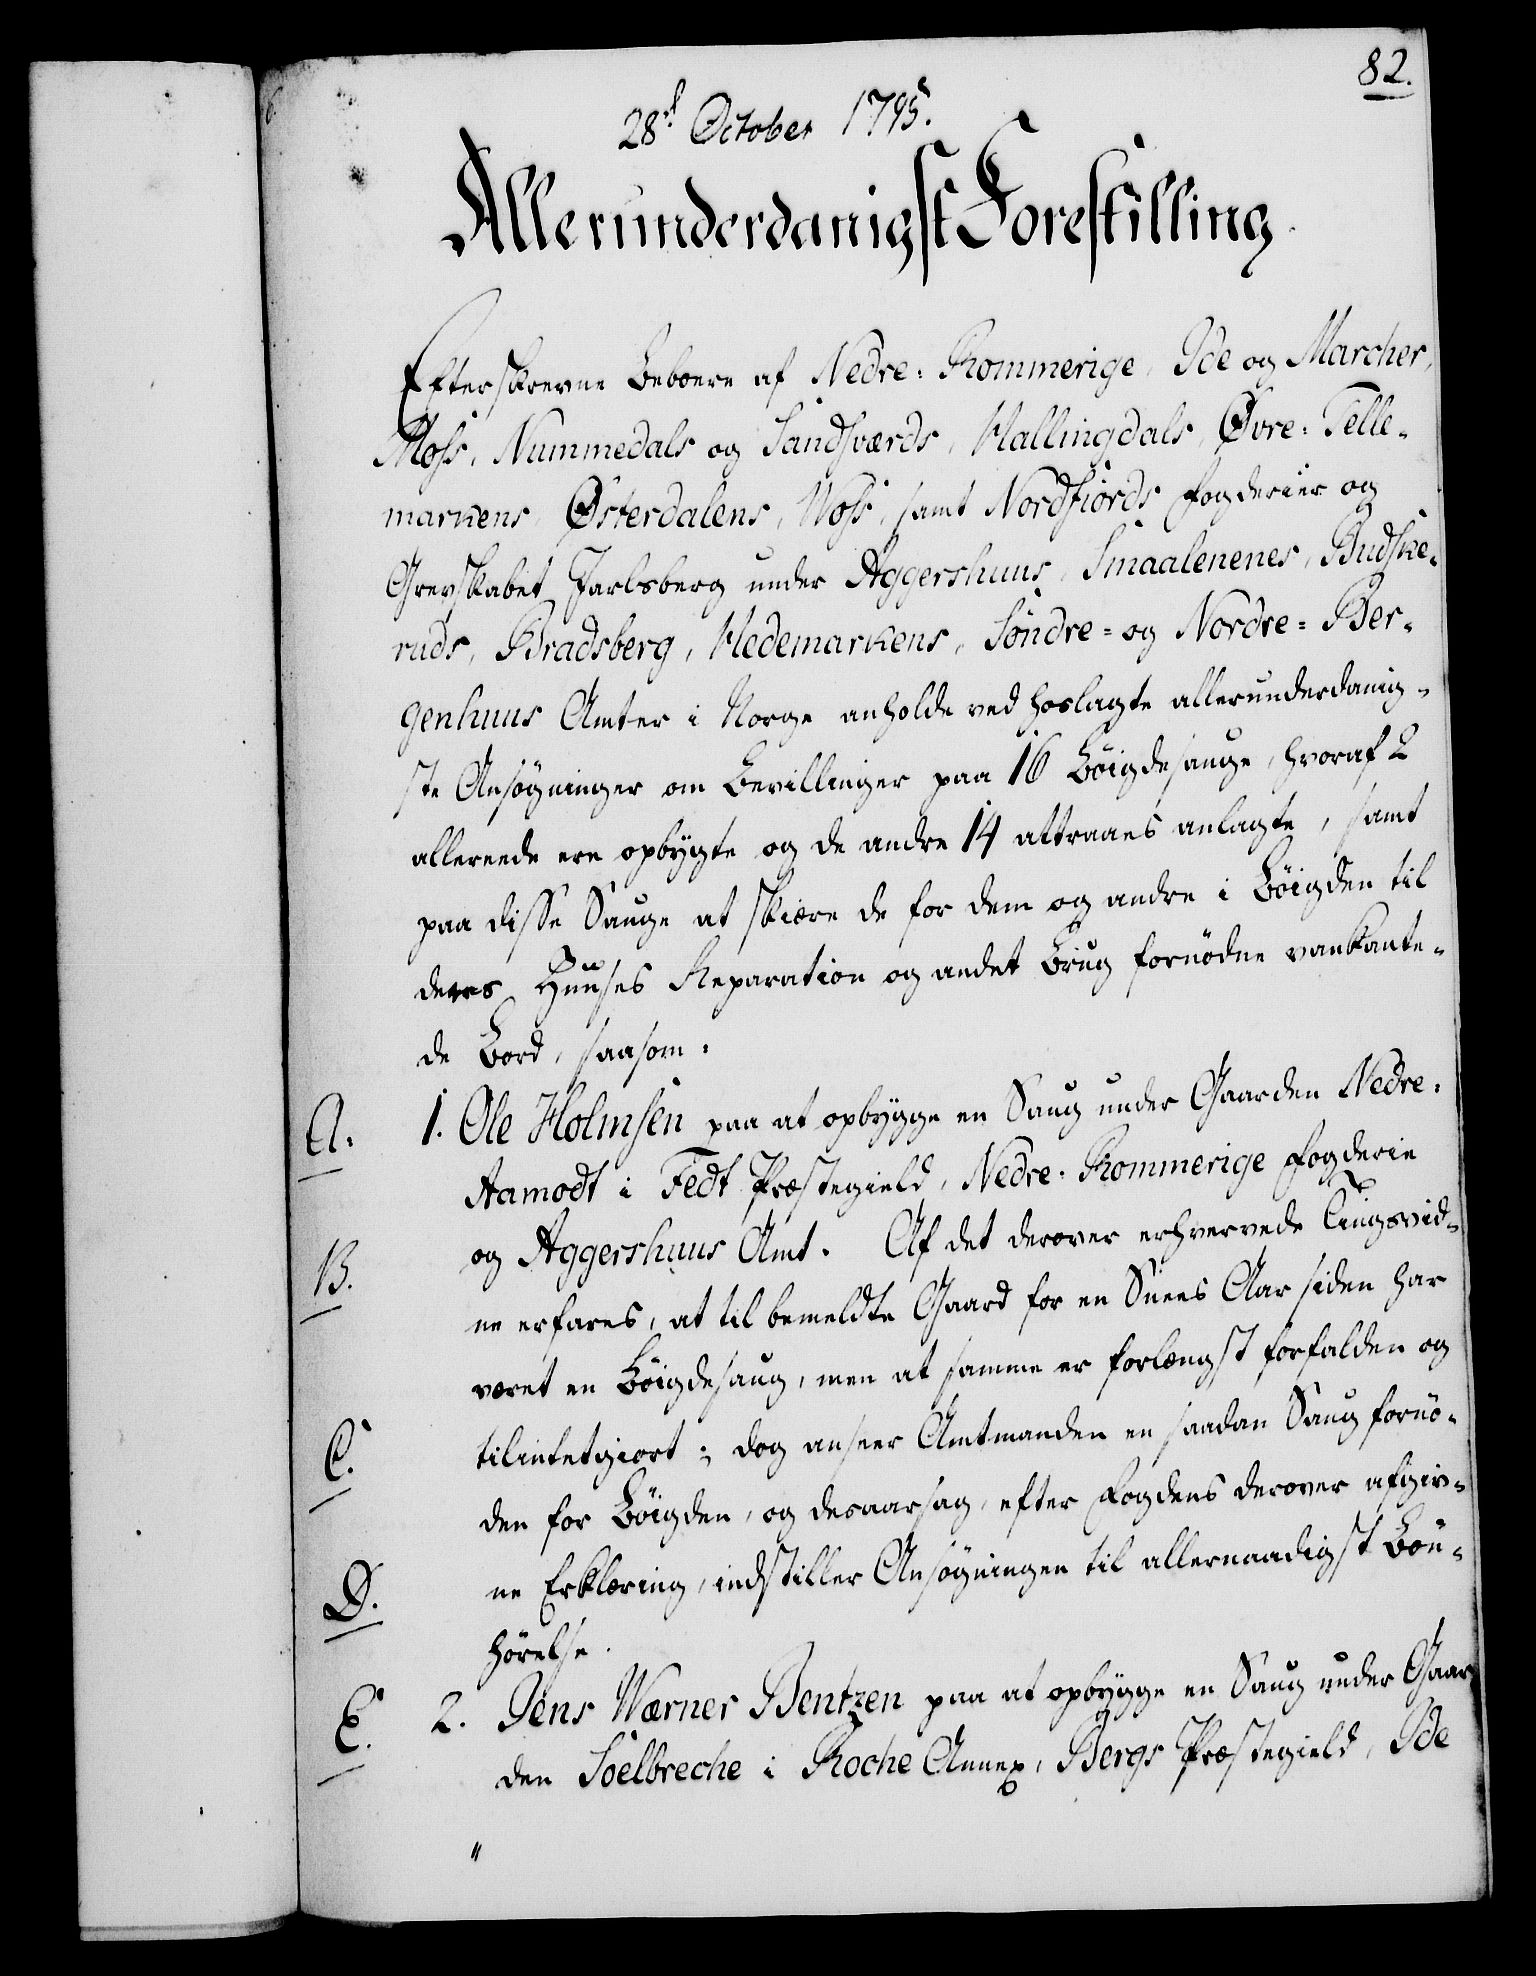 82.
28d October 1795.
Allerunderdanigst Forestilling
Efterskrevne Beboere af Nedre-Rommerige, Ide og Marcher,
Moss, Nummedals og Sandsværds, Hallingdals, Øvre-Telle-
markens, Østerdalens, Woss, samt Nordfiords Fogderier og
Grevskabet Jarlsberg under Aggershuus, Smaalenenes, Budske-
ruds, Bradsberg, Hedemarkens, Søndre- og Nordre-Ber-
genhuus Amter i Norge anholde ved hoslagte allerunderdanig-
ste Ansøgninger om Bevillinger paa 16 Bøigdesauge, hvoraf 2
allereede ere opbygte og de andre 14 attraaes anlagte, samt
paa disse Sauge at skiære de for dem og andre i Bøigden til
deres Huuses Reparation og andet Brug fornødne vankante-
de Bord, saasom:
A. 1. Ole Holmsen paa at opbygge en Saug under Gaarden Nedre-
Aamodt i Fedt Præstegield, Nedre-Rommerige Fogderie
og Aggershuus Amt. Af det derover erhvervede Tingsvid-
B.
ne erfares, at til bemeldte Gaard for en Snees Aar siden har
været en Bøigdesaug, men at samme er forlængst forfalden og
C.
tilintetgiort; dog anseer Amtmanden en saadan Saug fornø-
den for Bøigden, og desaarsag, efter Fogdens derover afgiv-
D.
ne Erklæring, indstiller Ansøgningen til allernaadigst Bøn-
hørelse.
E. 2. Jens Wærner Bentzen paa at opbygge en Saug under Gaar
den Soelbreche i Roche Annex, Bergs Præstegield, Ide
"